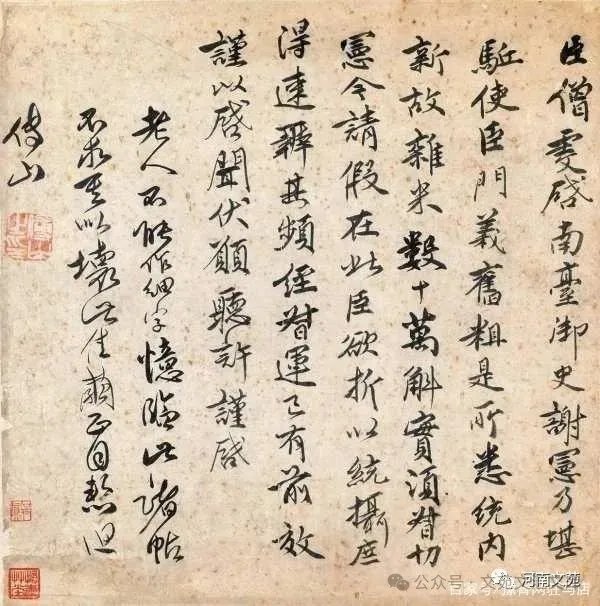 臣僧虔啓南臺御史謝憲乃堪
駈使臣門義舊粗是所悉統内
新故雜米數十萬斛實須督切
憲令請假在此臣欲折以統攝庶
得速辦其頻經督運已有前效
謹以啓聞伏願聽許謹啓
老人不能作細字憶臨此諸帖
不求其似壞此佳繭正自
傅山
公众号 · 文苑
河南文苑